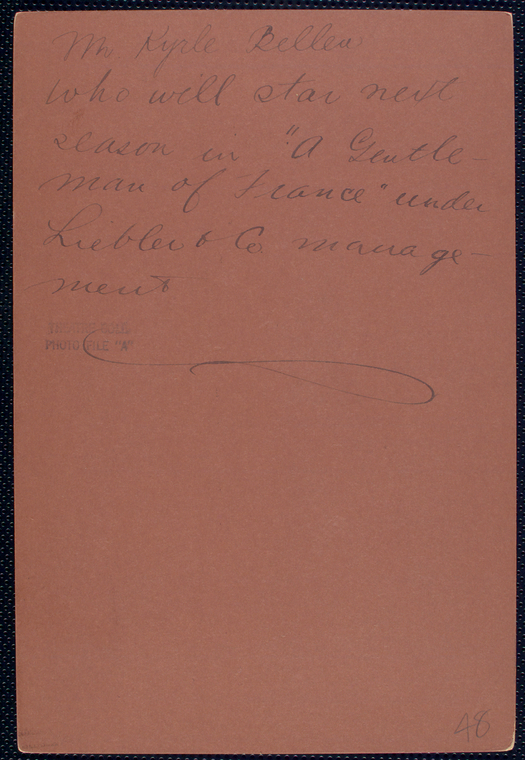 Mr Kyrle Bellew
who will star next
season in "A Gentle-
man of France" under
Liebler & Co manage-
ment
PHOTO FILE "A"
48